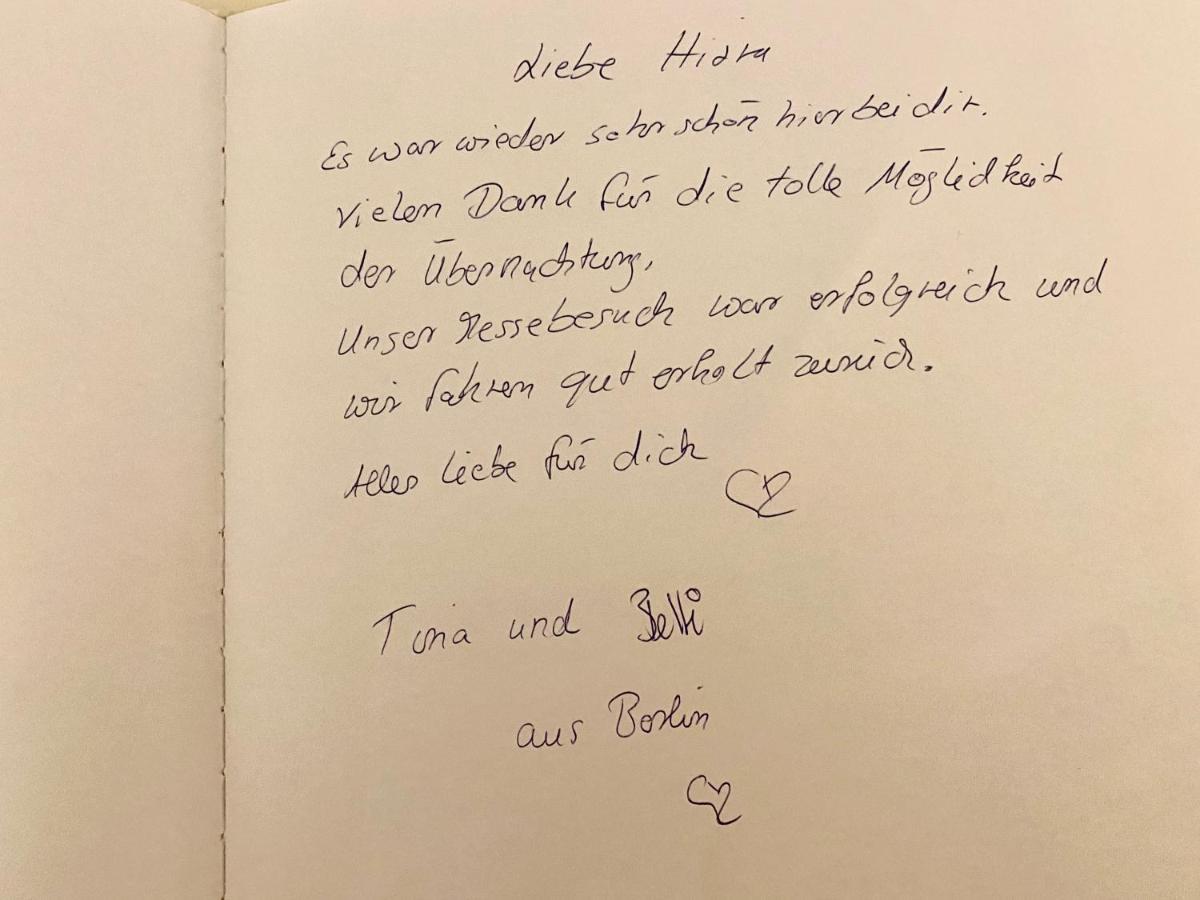 Liebe Hidra
Es war wieder sehr schön hier bei dir.
Vielen Dank für die tolle Möglichkeit
der Übernachtung,
Unser Messebesuch war erfolgreich und
wir fahren gut erholt zurück.
Alles Liebe für dich
Tina und
aus Berlin